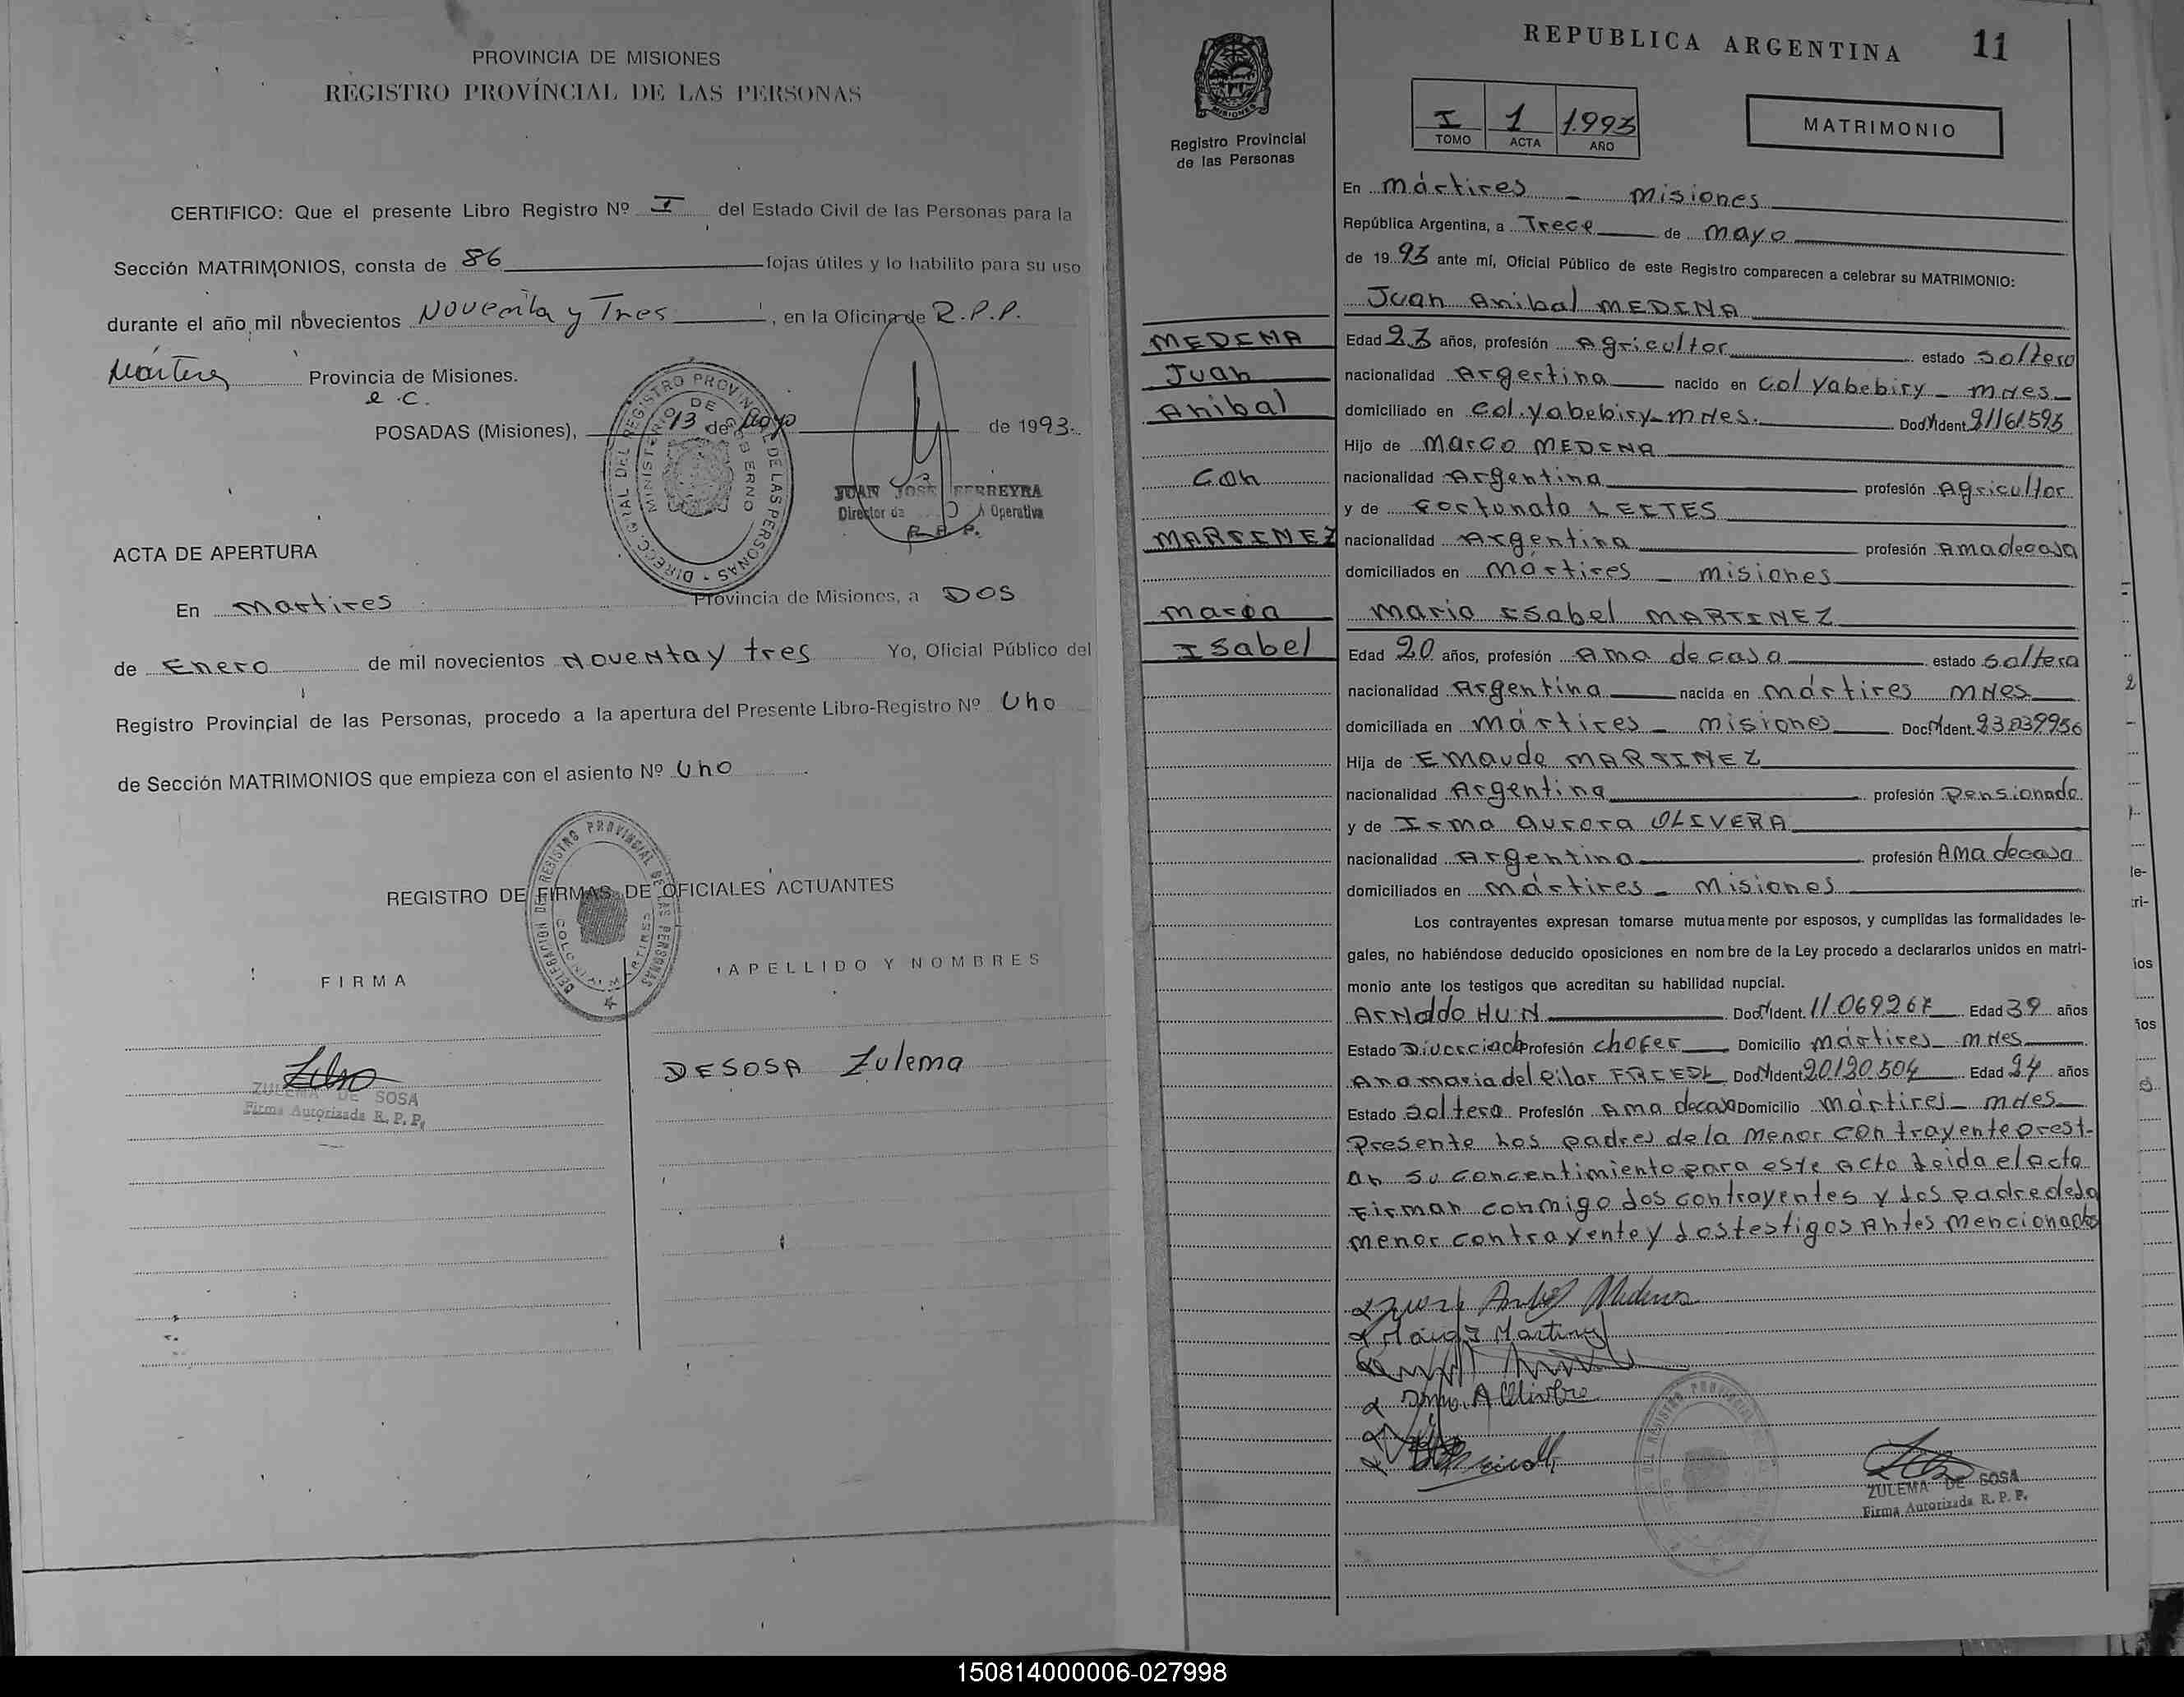 PROVINCIA DE MISIONES
REGISTRO PROVINCIAL DE LAS PERSONAS
CERTIFICO: Que el presente Libro Registro Nº I del Estado Civil de las Personas para la
Sección MATRIMONIOS, consta de 86 fojas útiles y lo habilito para su uso
durante el año mil novecientos Noventa y Tres, en la Oficina de R.P.P.
Mártires Provincia de Misiones.
e.c.
POSADAS (Misiones), 13 de Mayo de 1993.
JUAN JOSE FERREYRA
Director de Operativa
R. P. P.
ACTA DE APERTURA
En Martires Provincia de Misiones, a DOS
de Enero de mil novecientos Noventa y tres Yo, Oficial Público del
Registro Provincial de las Personas, procedo a la apertura del Presente Libro-Registro Nº Uno
de Sección MATRIMONIOS que empieza con el asiento Nº Uno
REGISTRO DE FIRMAS DE OFICIALES ACTUANTES
FIRMA
APELLIDO Y NOMBRES
DESOSA Zulema
ZULEMA DE SOSA
Firma Autorizada R. P. P.
REPUBLICA ARGENTINA 11
MISIONES
Registro Provincial
de las Personas
I 1 1993
TOMO ACTA AÑO
MATRIMONIO
MEDINA
Juan
Anibal
con
MARTINEZ
Maria
Isabel
En Mártires - Misiones
República Argentina, a Trece de Mayo
de 1993 ante mí, Oficial Público de este Registro comparecen a celebrar su MATRIMONIO:
Juan Anibal MEDINA
Edad 23 años, profesión Agricultor estado Soltero
nacionalidad Argentina nacido en Col Yabebiry - MNes
domiciliado en Col. Yabebiry - MNes. Doc. Ident. 21161593
Hijo de Marco MEDINA
nacionalidad Argentina profesión Agricultor
y de Fortunata LEITES
nacionalidad Argentina profesión Ama de casa
domiciliados en Mártires - Misiones
Maria Isabel MARTINEZ
Edad 20 años, profesión Ama de casa estado Soltera
nacionalidad Argentina nacida en Mártires MNes
domiciliada en Mártires - Misiones Doc. Ident. 23.039956
Hija de Emaude MARTINEZ
nacionalidad Argentina profesión Pensionado
y de Irma Aurora OLIVERA
nacionalidad Argentina profesión Ama de casa
domiciliados en Mártires - Misiones
Los contrayentes expresan tomarse mutuamente por esposos, y cumplidas las formalidades le-
gales, no habiéndose deducido oposiciones en nombre de la Ley procedo a declararlos unidos en matri-
monio ante los testigos que acreditan su habilidad nupcial.
Arnoldo HUN Doc. Ident. 11.069267 Edad 39 años
Estado Divorciado Profesión chofer Domicilio Mártires - MNes
Ana Maria del Pilar Doc. Ident. 20120504 Edad 24 años
Estado Soltera Profesión Ama de casa Domicilio Mártires - MNes
Presente Los padres de la Menor contrayente prest-
an su concentimiento para este Acto Leida el acta
Firman conmigo Los contrayentes y Los padre de la
menor contrayente y Los testigos Antes mencionados
ZULEMA DE SOSA
Firma Autorizada R. P. P.
150814000006-027998